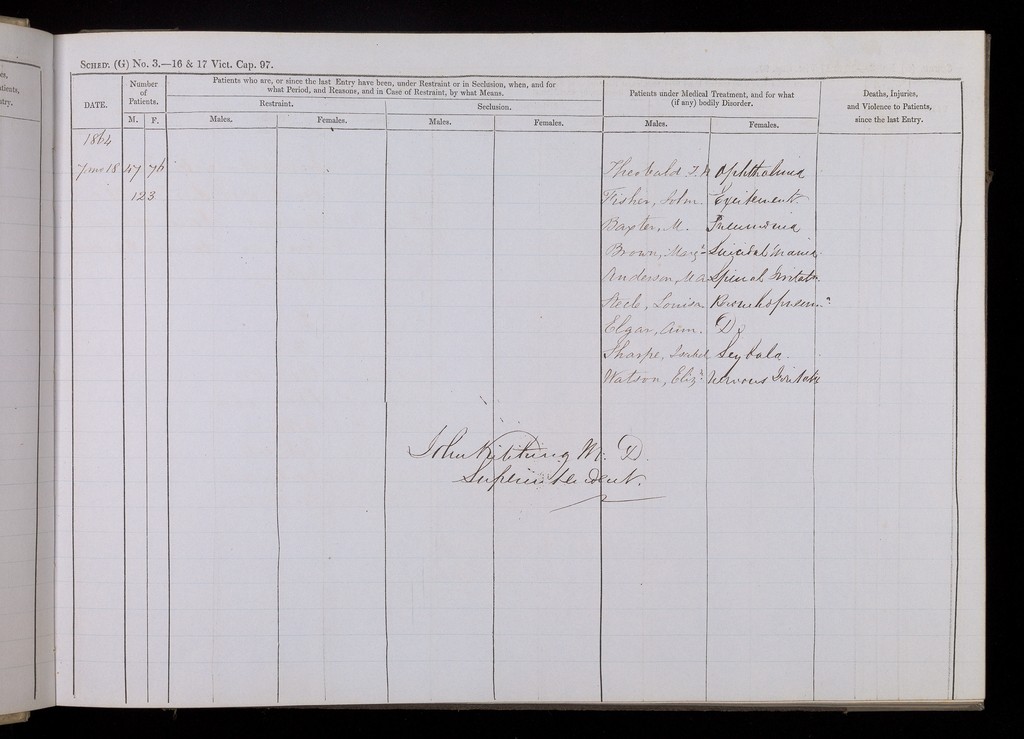 SCHED. (G) No. 3.—16 & 17 Vict. Cap. 97.
DATE.
Number of Patients.
M. F.
Patients who are, or since the last Entry have been, under Restraint or in Seclusion, when, and for
what Period, and Reasons, and in Case of Restraint, by what Means.
Restraint.
Seclusion.
Males. Females. Males. Females.
Patients under Medical Treatment, and for what
(if any) bodily Disorder.
Males. Females.
Deaths, Injuries,
and Violence to Patients,
since the last Entry.
1864
18 47 76 Theobald Ophthalmia
123 Fisher, John. Excitement
Baxter, M. Pneumonia
Brown, Marg.t Suicidal Mania
Anderson, Spinal Irritatn
Louisa
Elgar, Ann. Do
Sharpe, Isabel
Watson, Eliz.h Nervous Irritatn
John Kitching M. D.
Superintendent.